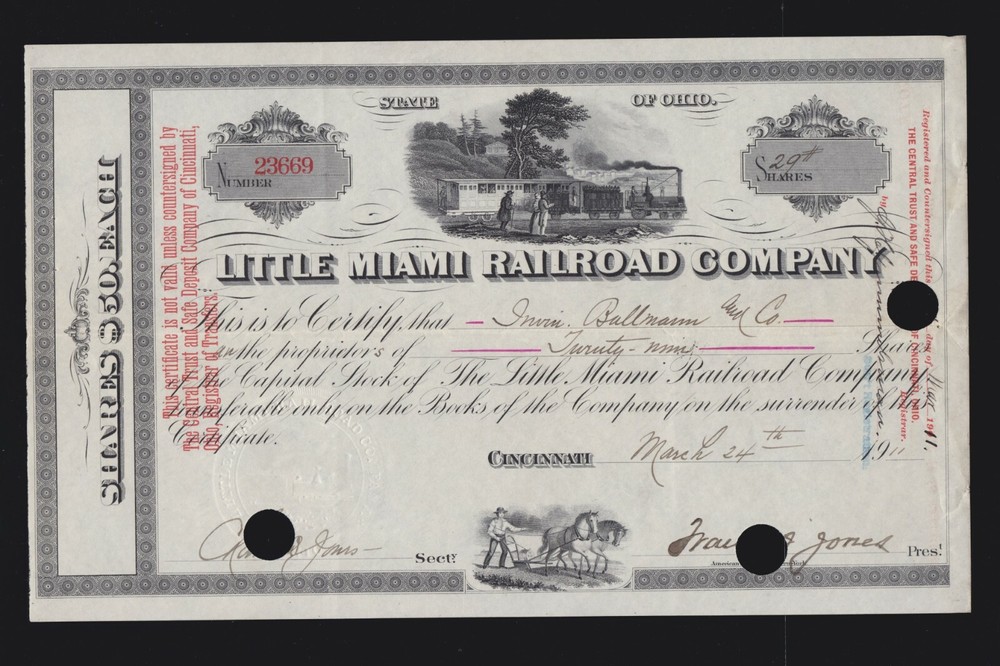 STATE OF OHIO.
NUMBER 23669
29 SHARES
SHARES $50. EACH
This certificate is not valid unless countersigned by
The Central Trust and Safe Deposit Company of Cincinnati,
Ohio, Registrar of Transfers.
Registered and Countersigned this
day of Mar 1911.
THE CENTRAL TRUST AND SAFE DE
OF CINCINNATI, OHIO.
by
Registrar.
LITTLE MIAMI RAILROAD COMPANY
This is to Certify, that Irwin. Ballmann and Co.
the proprietors of Twenty-nine Shares
the Capital Stock of The Little Miami Railroad Company
transferable only on the Books of the Company on the surrender of this
Certificate.
CINCINNATI March 24th 1911
Jones Secty.
Frank J Jones Prest.